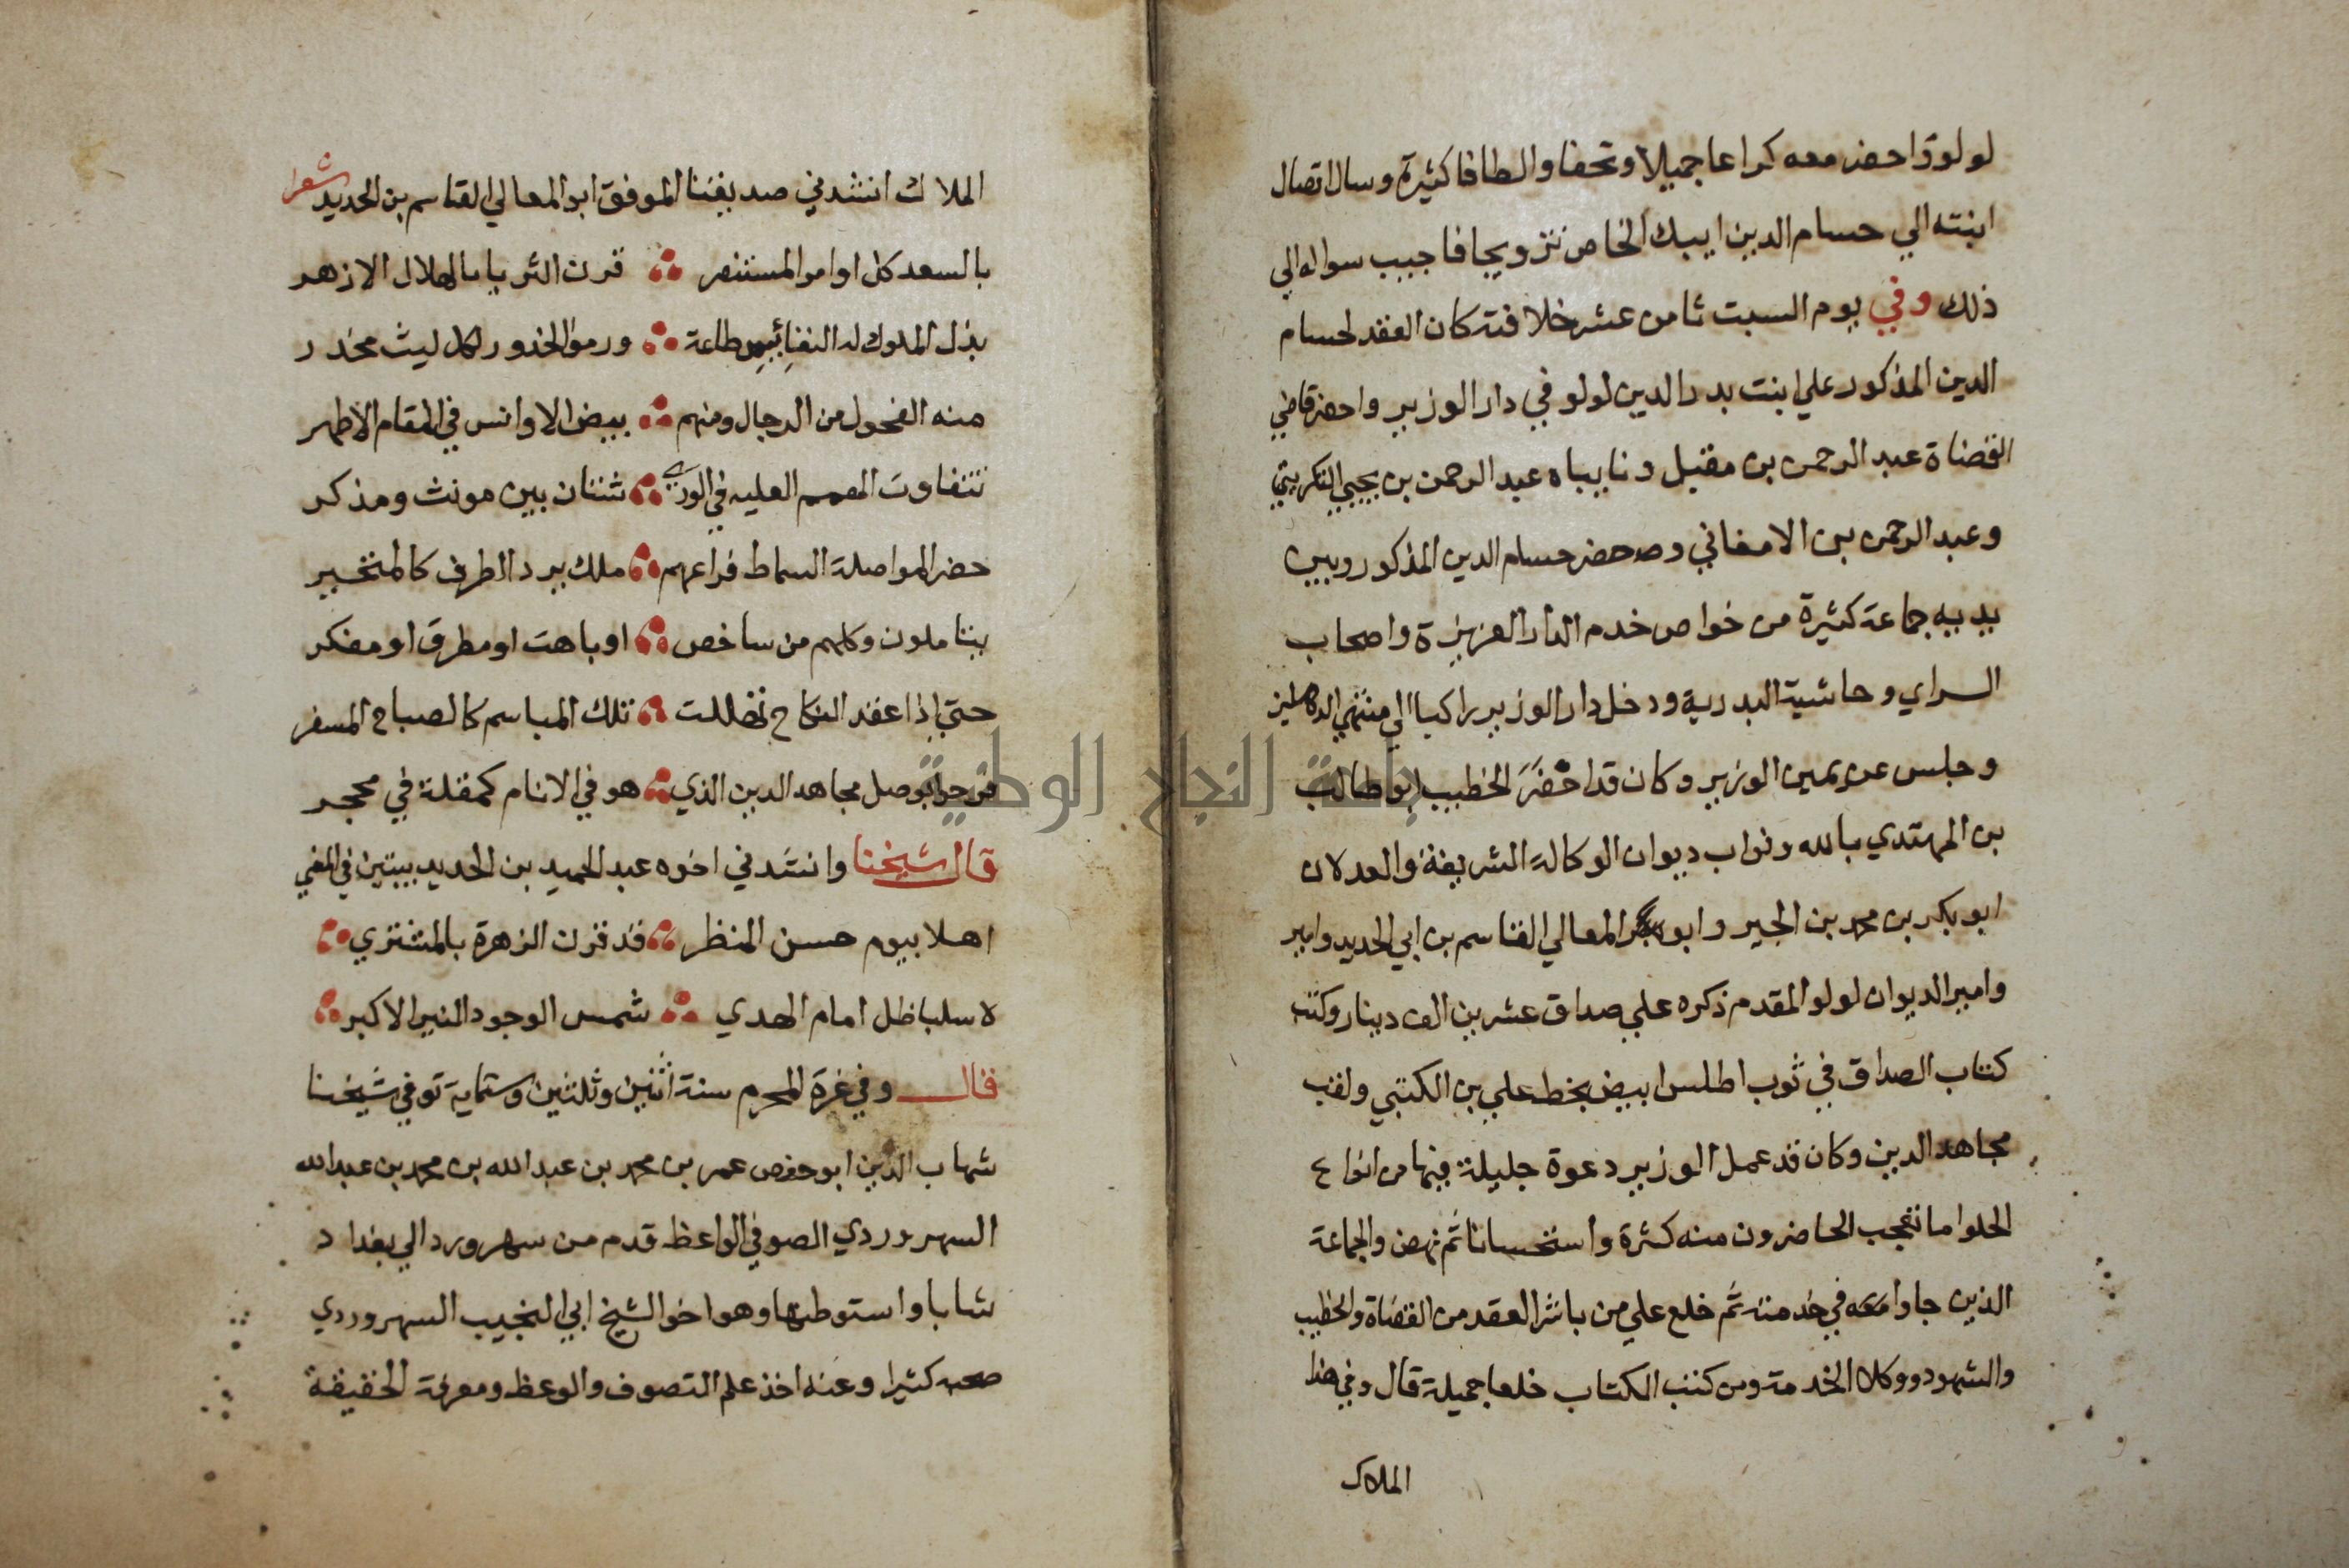 لولو وَاحضر معه كراعا جميلا وتحفا والطافا كثيرة وسال اتصال
ابنته الي حسام الدين ايبك الخاص تزويجا فاجيب سواله الي
ذلك وفي يوم السبت ثامن عشر خلافته كان العقد لحسام
الدين المذكور علي ابنت بدر الدين لولو في دار الوزير واحضر قاضي
القضاة عبد الرحمن بن مقبل ونايباه عبد الرحمن بن يحيي التكريتي
وعبد الرحمن بن الامغاني وحضر حسام الدين المذكور وبين
يديه جماعة كثيرة من خواص خدم الدار العزيزة واصحاب
السراي وحاشية البدرية ودخل دار الوزير راكبا الي منتهي الدهليز
وجلس عن يمين الوزير وكان قد احضر الخطيب ابو طالب
بن المهتدي بالله ونواب ديوان الوكالة الشريفة والعدلان
ابو بكر بن محمد بن الجير وابو المعالي القاسم بن ابي الحديد وامير
وامير الديوان لولو المقدم ذكره علي صداق عشرين الف دينار وكتب
كتاب الصداق في ثوب اطلس ابيض بخط علي بن الكتبي ولقب
مجاهد الدين وكان قد عمل الوزير دعوة جليلة فيها من انواع
الحلوا ما تعجب الحاضرون منه كثرة واستحسانا ثم نهض والجماعة
الذين جاوا معه في خدمته ثم خلع علي من باشر العقد من القضاة والخطيب
والشهود ووكلا الخدمة ومن كتب الكتاب خلعا جميلة قال وفي هذا
الملاك
الملاك انشدني صديقنا الموفق ابو المعالي القاسم بن الحديد شعرا
بالسعد كل اوامر المستنصر قرن الثريا بالهلال الازهر
بذل الملوك له النفائس طاعة ورموا الخدور لكل ليث مخدر
منه الفحول من الرجال ومنهم بيض الاوانس في المقام الاطهر
تتفاوت الهمم العليه في الوري شتان بين مونث ومذكر
حضر المواصلة السماط فراعهم ملك يرد الطرف كالمتحير
يتاملون وكلهم من ساخص او باهت او مطرق او مفكر
حتي إذا عقد النكاح تظللت تلك المباسم كالصباح المسفر
فرحوا بوصل مجاهد الدين الذي هو في الانام كمقلة في محجر
قال شيخنا وانشدني اخوه عبد الحميد بن الحديد بيتين في المعني
اهلا بيوم حسن المنظر قد قرن الزهرة بالمشتري
لا سلبا ظل امام الهدي شمس الوجود النير الاكبر
قال وفي غرة المحرم سنة اثنين وثلثين وستماية توفي شيخنا
شهاب الدين ابو حفص عمر بن محمد بن عبد الله بن محمد بن عبد الله
السهروردي الصوفي الواعظ قدم من سهرورد الي بغداد
شابا واستوطنها وهو اخو الشيخ ابي النجيب السهروردي
صحبه كثيرا وعنه اخذ علم التصوف والوعظ ومعرفة الحقيقة
جامعة النجاح الوطنية